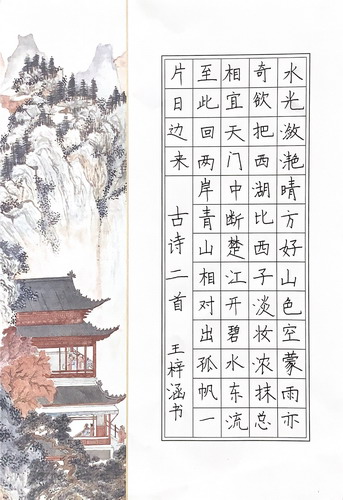 水光潋滟晴方好山色空蒙雨亦
奇欲把西湖比西子淡妆浓抹总
相宜天门中断楚江开碧水东流
至此回两岸青山相对出孤帆一
片日边来 古诗二首 王梓涵书